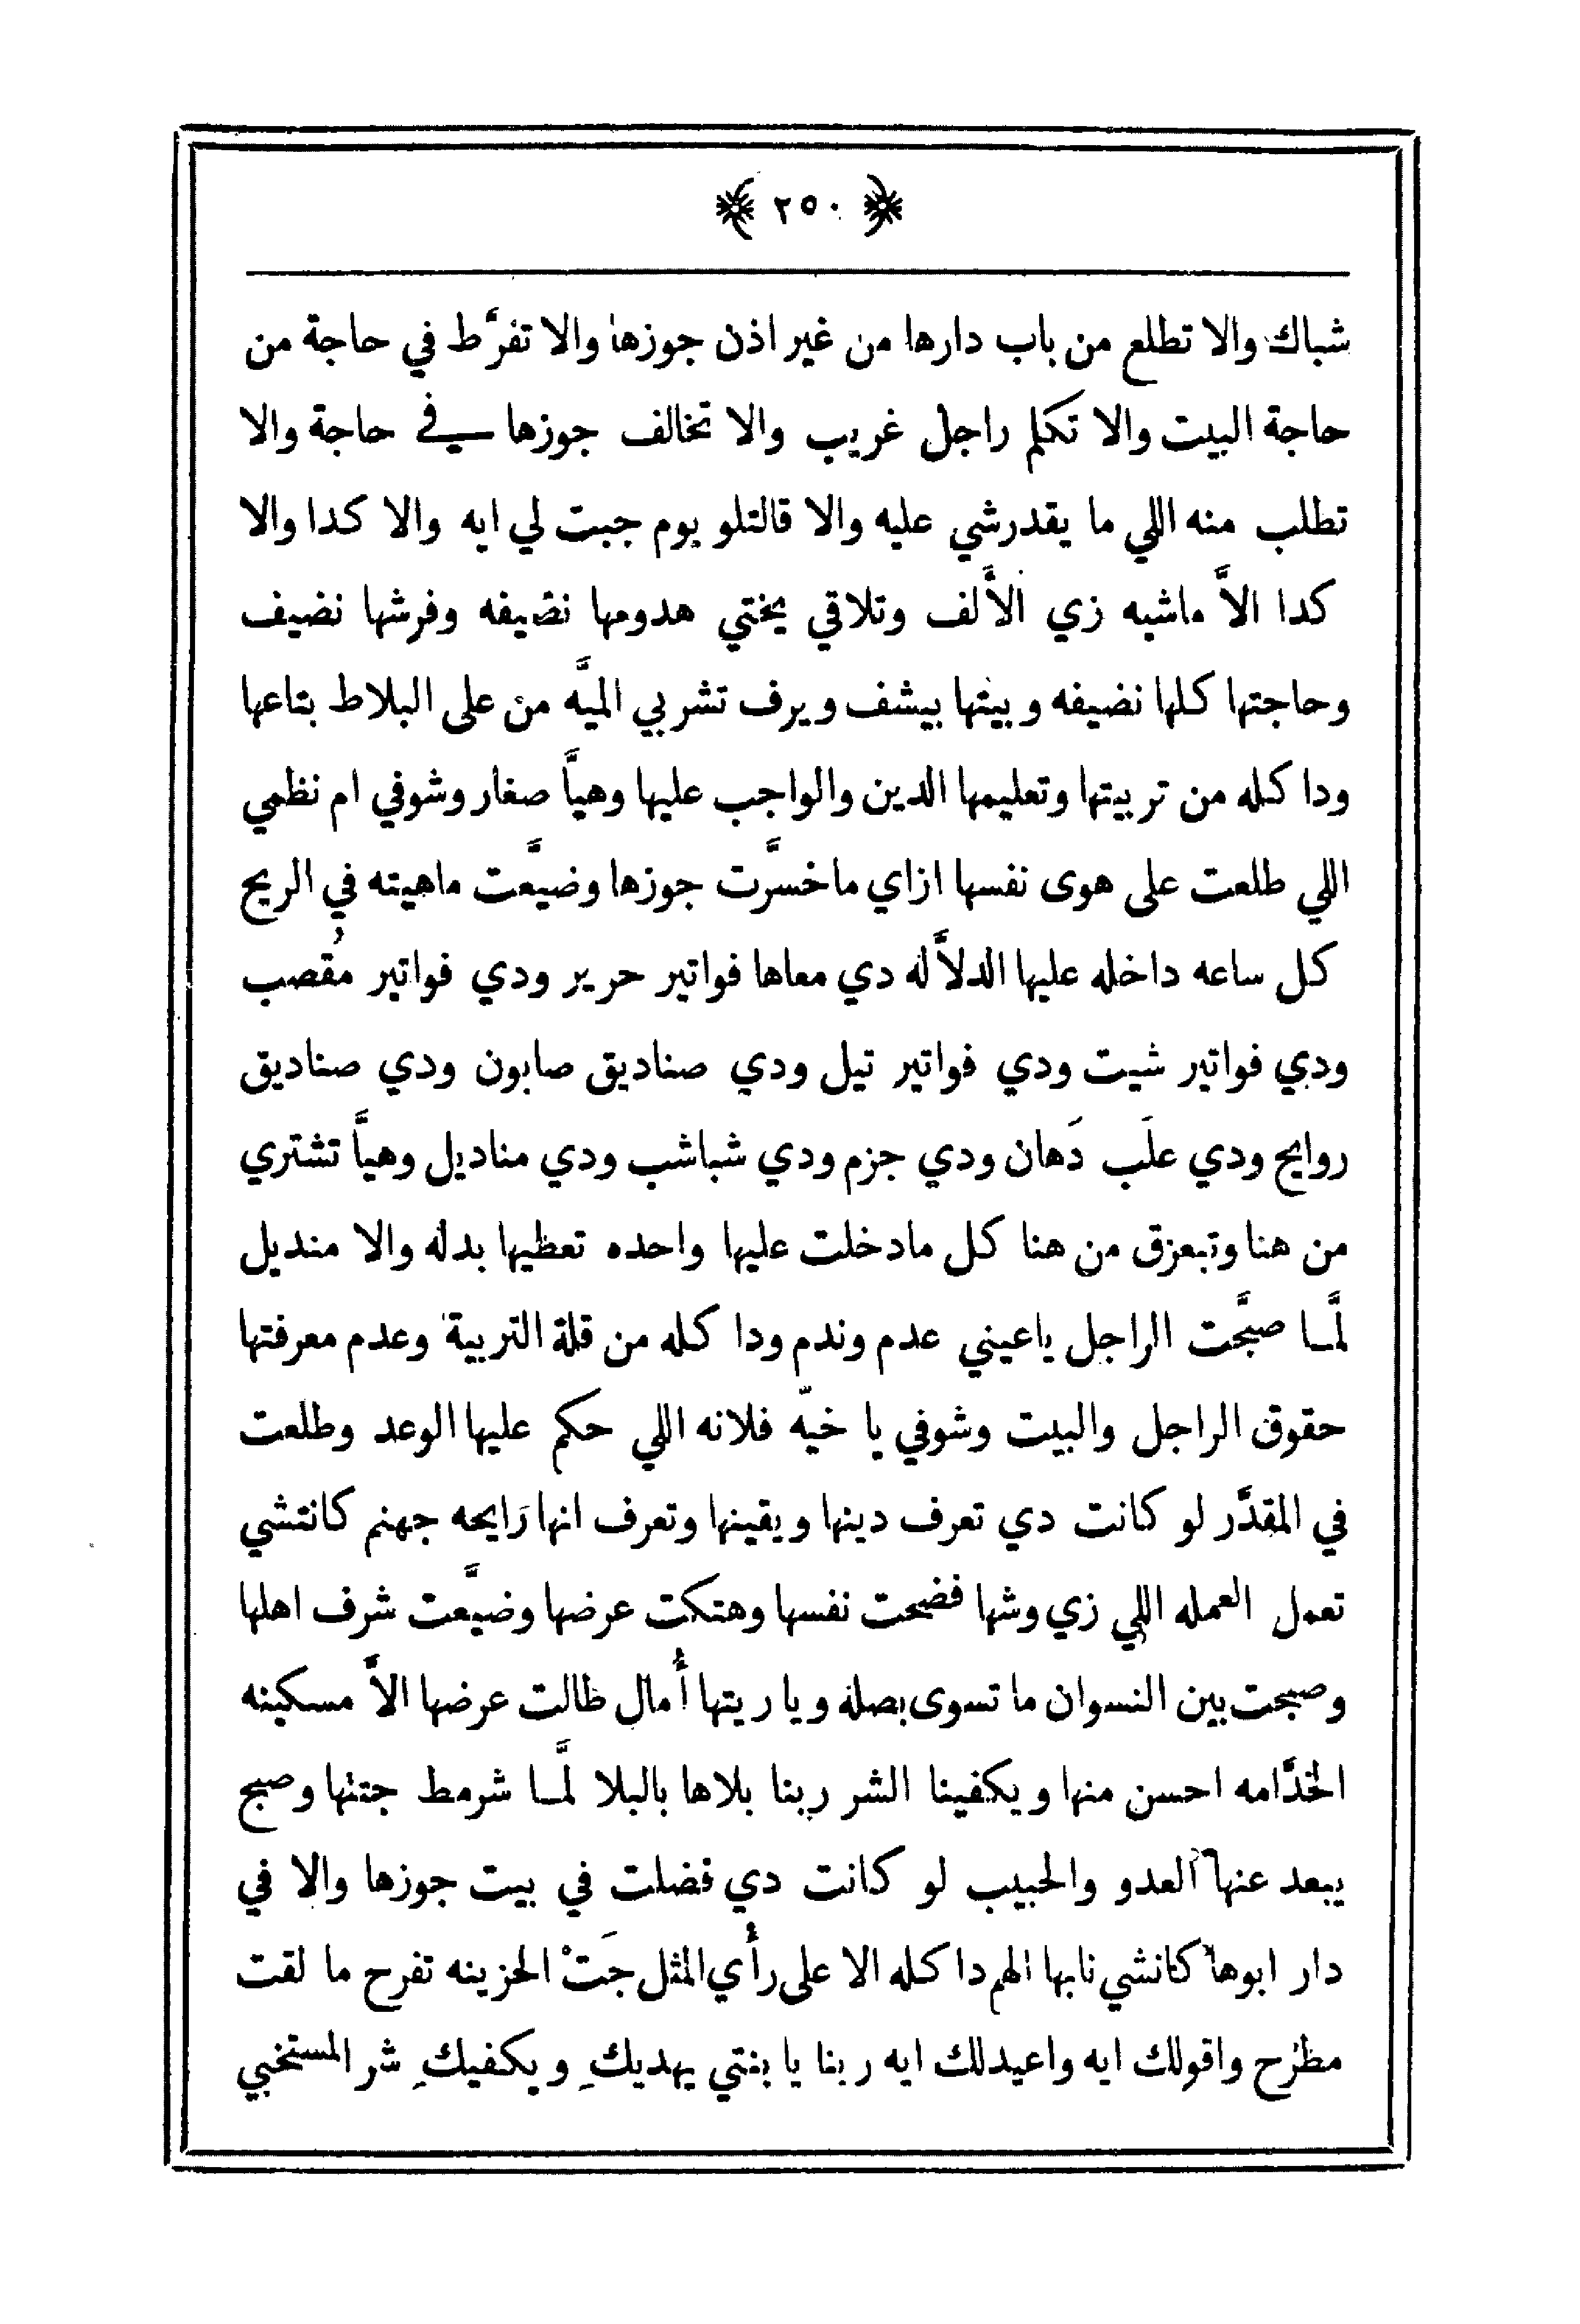 ٢٥٠
شباك والا تطلع من باب دارها من غير اذن جوزها والا تفرَّط في حاجة من
حاجة البيت والا تكلم راجل غريب والا تخالف جوزها في حاجة والا
تطلب منه اللي ما يقدرشي عليه والا قالتلو يوم جبت لي ايه والا كدا والا
كدا الاَّ ماشيه زي الأَلف وتلاقي يختي هدومها نضيفه وفرشها نضيف
وحاجتها كلها نضيفه وبيتها بيشف ويرف تشربي الميَّه من على البلاط بتاعها
ودا كله من تربيتها وتعليمها الدين والواجب عليها وهيَّا صغار وشوفي ام نظمي
اللي طلعت على هوى نفسها ازاي ماخسَّرت جوزها وضيَّعت ماهيته في الريح
كل ساعه داخله عليها الدلاَّله دي معاها فواتير حرير ودي فواتير مُقصب
ودي فواتير شيت ودي فواتير تيل ودي صناديق صابون ودي صناديق
روايح ودي علَب دَهان ودي جزم ودي شباشب ودي مناديل وهيَّا تشتري
من هنا وتبعزق من هنا كل مادخلت عليها واحده تعظيها بدله والا منديل
لمَّـا صبَّحت الراجل ياعيني عدم وندم ودا كله من قلة التربية وعدم معرفتها
حقوق الراجل والبيت وشوفي يا خيّه فلانه اللي حكم عليها الوعد وطلعت
في المقدَّر لو كانت دي تعرف دينها ويقينها وتعرف انها رَايحه جهنم كانتشي
تعمل العمله اللي زي وشها فضحت نفسها وهتكت عرضها وضيَّعت شرف اهلها
وصبحت بين النسوان ما تسوى بصله ويا ريتها أُمال ظالت عرضها الاَّ مسكينه
الخدَّامه احسن منها ويكفينا الشر ربنا بلاها بالبلا لمَّـا شرمط جتتها وصبح
يبعد عنها العدو والحبيب لو كانت دي فضلت في بيت جوزها والا في
دار ابوها كانشي نابها الهم دا كله الا على رأي المثل جَتْ الحزينه تفرح ما لقت
مطرَح واقولك ايه واعيدلك ايه ربنا يا بنتي يهديكِ ويكفيكِ شر المستخبي